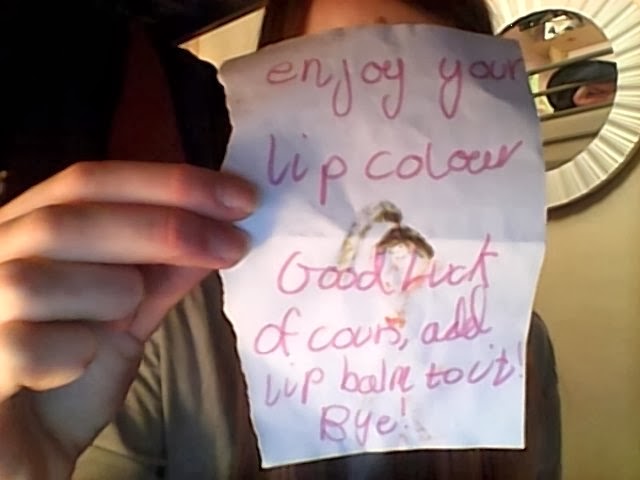 enjoy your
lip colour
Good Luck
of cours, add
lip balm to it!
Bye!